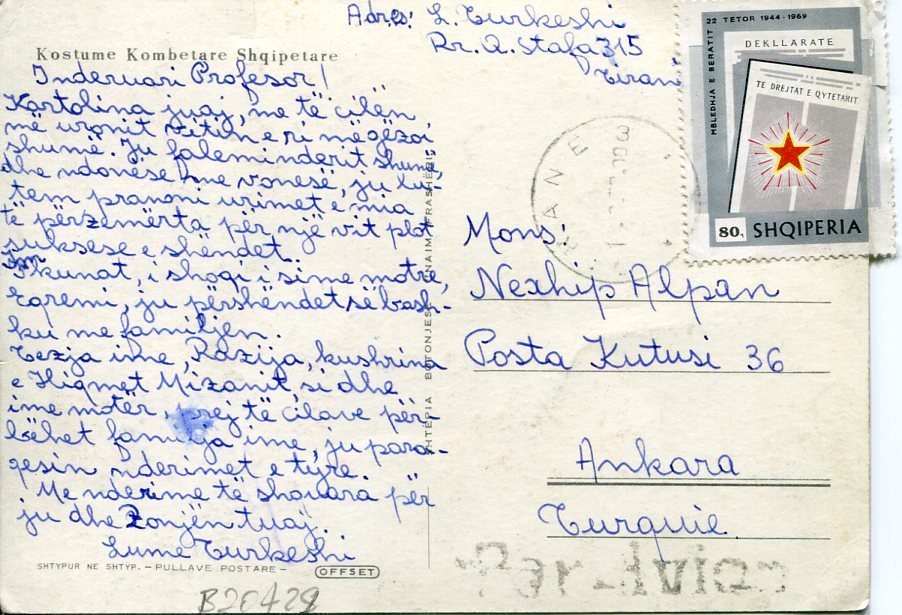 Adres: L. Turkeshi
Rr. A. Stafa 315
Tiranë
Kostume Kombetare Shqipetare
Inderuari Profesor!
Kartolina juaj, me të cilën
më uronit vitin e ri më gëzoi
shumë. Ju faleminderit shumë,
dhe ndonëse me vonesë, ju lu-
tem pranoni urimet e mia
të përzemërta për një vit plot
suksese e shëndet.
Im kunat, i shoqi i sime motre,
Eqremi, ju përshëndet së bash-
ku me familjen.
Tezja ime, Razija, kushrina
e Hiqmet Mizanit, si dhe
ime motër, prej të cilave për-
bëhet familja ime, ju para-
qesin nderimet e tyre.
Me nderime të shquara për
ju dhe Zonjën tuaj.
Lume Turkeshi
SHTYPUR NE SHTYP. - PULLAVE POSTARE -
OFFSET
B20429
SHTEPIA BOTONJESE "NAIM FRASHERI"
22 TETOR 1944-1969
MBLEDHJA E BERATIT
DEKLLARATE
TE DREJTAT E QYTETARIT
80q SHQIPERIA
Mons:
Nexhip Alpan
Posta Kutusi 36
Ankara
Turquie
Par-Avion